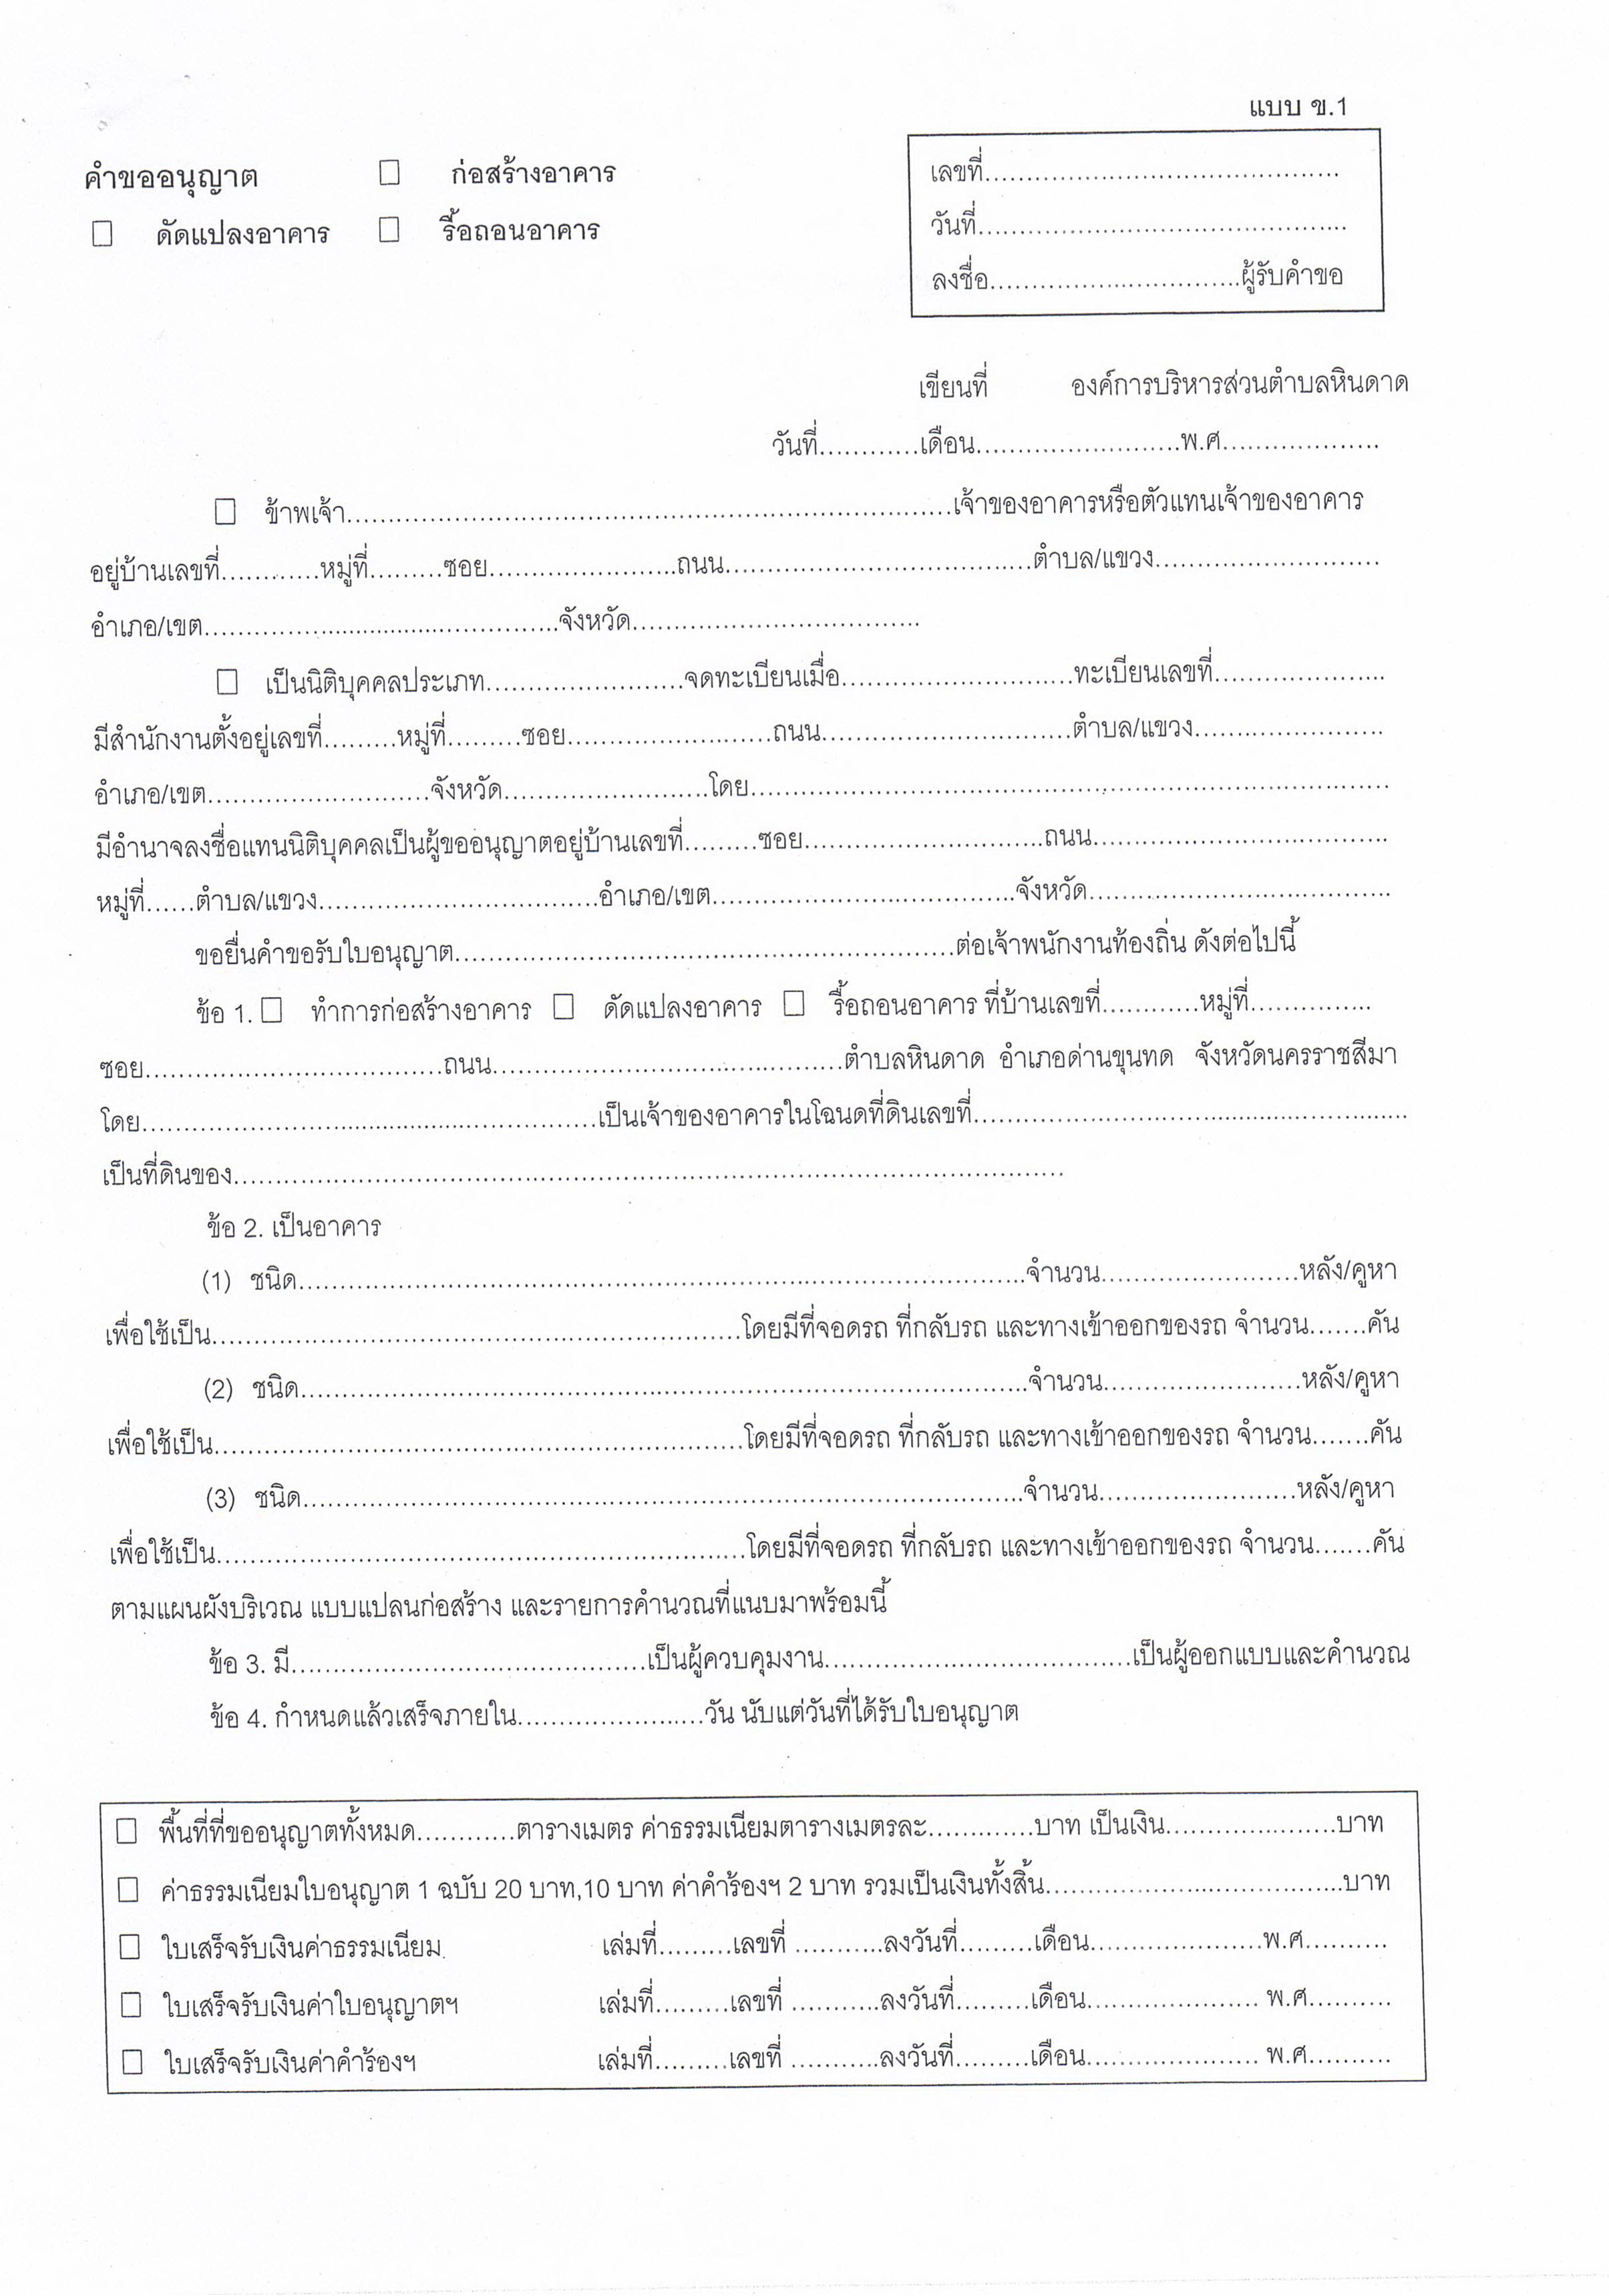 แบบ ข.1
คำขออนุญาต ☐ ก่อสร้างอาคาร
☐ ดัดแปลงอาคาร ☐ รื้อถอนอาคาร
เลขที่............................................
วันที่.............................................
ลงชื่อ..............................ผู้รับคำขอ
เขียนที่ องค์การบริหารส่วนตำบลหินดาด
วันที่............เดือน.........................พ.ศ...................
☐ ข้าพเจ้า..........................................................................เจ้าของอาคารหรือตัวแทนเจ้าของอาคาร
อยู่บ้านเลขที่............หมู่ที่.........ซอย.......................ถนน.....................................ตำบล/แขวง...........................
อำเภอ/เขต...........................................จังหวัด...................................
☐ เป็นนิติบุคคลประเภท........................จดทะเบียนเมื่อ............................ทะเบียนเลขที่.....................
มีสำนักงานตั้งอยู่เลขที่.........หมู่ที่.........ซอย.........................ถนน..............................ตำบล/แขวง.......................
อำเภอ/เขต...........................จังหวัด.........................โดย..............................................................................
มีอำนาจลงชื่อแทนนิติบุคคลเป็นผู้ขออนุญาตอยู่บ้านเลขที่.........ซอย.............................ถนน....................................
หมู่ที่......ตำบล/แขวง..................................อำเภอ/เขต.....................................จังหวัด.....................................
ขอยื่นคำขอรับใบอนุญาต.............................................................ต่อเจ้าพนักงานท้องถิ่น ดังต่อไปนี้
ข้อ 1. ☐ ทำการก่อสร้างอาคาร ☐ ดัดแปลงอาคาร ☐ รื้อถอนอาคาร ที่บ้านเลขที่............หมู่ที่...............
ซอย....................................ถนน...........................................ตำบลหินดาด อำเภอด่านขุนทด จังหวัดนครราชสีมา
โดย........................................................เป็นเจ้าของอาคารในโฉนดที่ดินเลขที่.....................................................
เป็นที่ดินของ.....................................................................................................
ข้อ 2. เป็นอาคาร
(1) ชนิด.........................................................................................จำนวน........................หลัง/คูหา
เพื่อใช้เป็น.................................................................โดยมีที่จอดรถ ที่กลับรถ และทางเข้าออกของรถ จำนวน.......คัน
(2) ชนิด.........................................................................................จำนวน........................หลัง/คูหา
เพื่อใช้เป็น.................................................................โดยมีที่จอดรถ ที่กลับรถ และทางเข้าออกของรถ จำนวน.......คัน
(3) ชนิด.........................................................................................จำนวน........................หลัง/คูหา
เพื่อใช้เป็น.................................................................โดยมีที่จอดรถ ที่กลับรถ และทางเข้าออกของรถ จำนวน.......คัน
ตามแผนผังบริเวณ แบบแปลนก่อสร้าง และรายการคำนวณที่แนบมาพร้อมนี้
ข้อ 3. มี...........................................เป็นผู้ควบคุมงาน.....................................เป็นผู้ออกแบบและคำนวณ
ข้อ 4. กำหนดแล้วเสร็จภายใน.......................วัน นับแต่วันที่ได้รับใบอนุญาต
☐ พื้นที่ที่ขออนุญาตทั้งหมด............ตารางเมตร ค่าธรรมเนียมตารางเมตรละ.............บาท เป็นเงิน.....................บาท
☐ ค่าธรรมเนียมใบอนุญาต 1 ฉบับ 20 บาท,10 บาท ค่าคำร้องฯ 2 บาท รวมเป็นเงินทั้งสิ้น....................................บาท
☐ ใบเสร็จรับเงินค่าธรรมเนียม เล่มที่.........เลขที่ ...........ลงวันที่.........เดือน.....................พ.ศ..........
☐ ใบเสร็จรับเงินค่าใบอนุญาตฯ เล่มที่.........เลขที่ ...........ลงวันที่.........เดือน..................... พ.ศ..........
☐ ใบเสร็จรับเงินค่าคำร้องฯ เล่มที่.........เลขที่ ...........ลงวันที่.........เดือน..................... พ.ศ..........